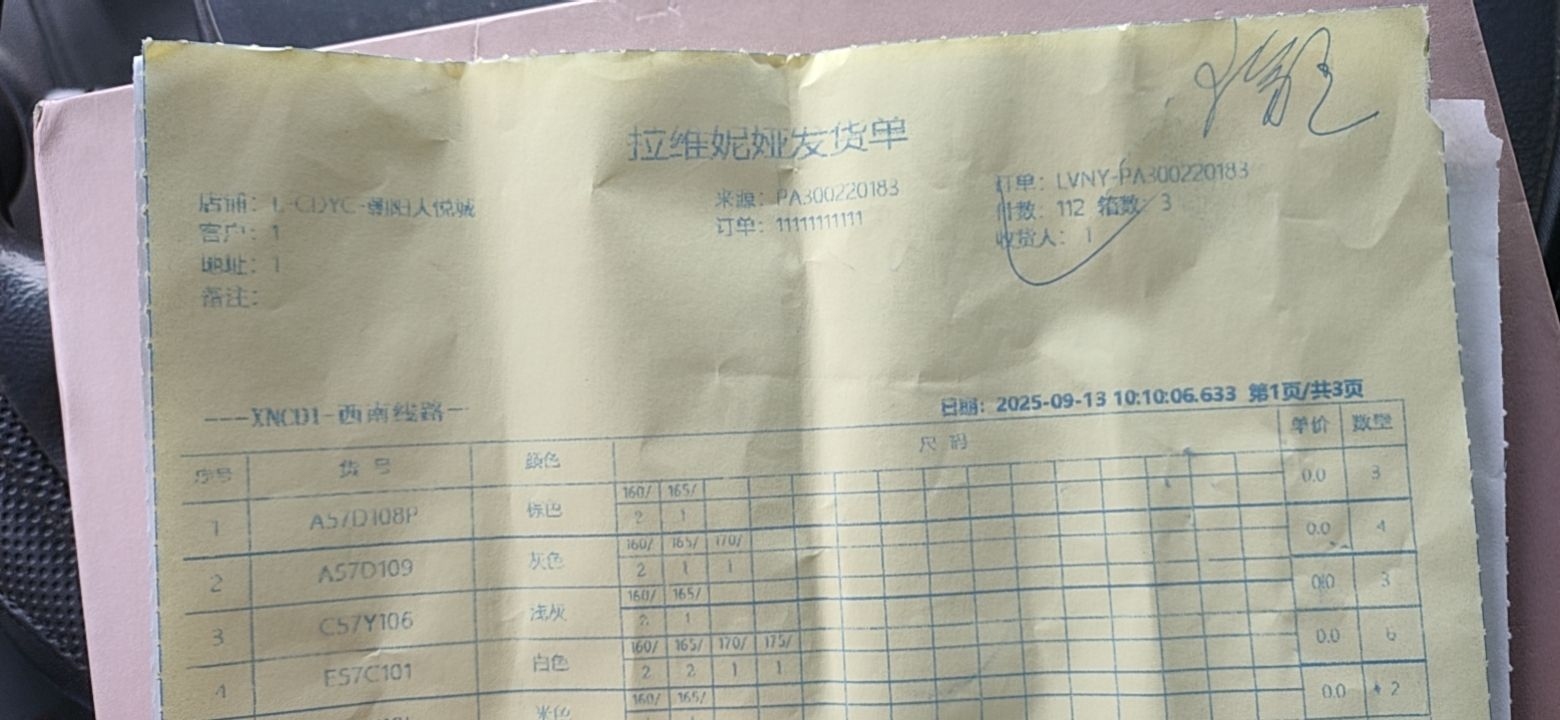 拉维妮娅发货单
店铺：L-CDYC-朝阳大悦城 来源：PA300220183 订单：LVNY-PA300220183
客户：1 订单：11111111111 件数：112 箱数：3
地址：1 收货人：1
备注：
---XNCD1-西南线路-- 日期：2025-09-13 10:10:06.633 第1页/共3页
序号 货号 颜色 尺码 单价 数量
160/ 165/
1 A57D108P 棕色 2 1 0.0 3
160/ 165/ 170/
2 A57D109 灰色 2 1 1 0.0 4
160/ 165/
3 C57Y106 浅灰 2 1 0.0 3
160/ 165/ 170/ 175/
4 E57C101 白色 2 2 1 1 0.0 6
160/ 165/
米色 0.0 2